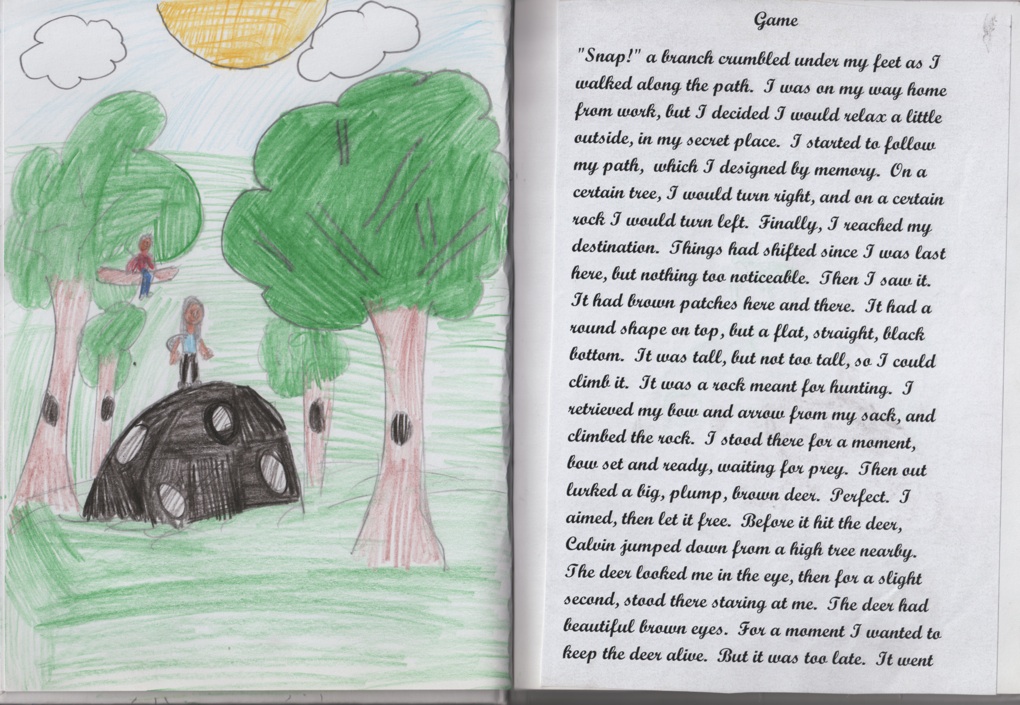 Game
"Snap!" a branch crumbled under my feet as I
walked along the path. I was on my way home
from work, but I decided I would relax a little
outside, in my secret place. I started to follow
my path, which I designed by memory. On a
certain tree, I would turn right, and on a certain
rock I would turn left. Finally, I reached my
destination. Things had shifted since I was last
here, but nothing too noticeable. Then I saw it.
It had brown patches here and there. It had a
round shape on top, but a flat, straight, black
bottom. It was tall, but not too tall, so I could
climb it. It was a rock meant for hunting. I
retrieved my bow and arrow from my sack, and
climbed the rock. I stood there for a moment,
bow set and ready, waiting for prey. Then out
lurked a big, plump, brown deer. Perfect. I
aimed, then let it free. Before it hit the deer,
Calvin jumped down from a high tree nearby.
The deer looked me in the eye, then for a slight
second, stood there staring at me. The deer had
beautiful brown eyes. For a moment I wanted to
keep the deer alive. But it was too late. It went